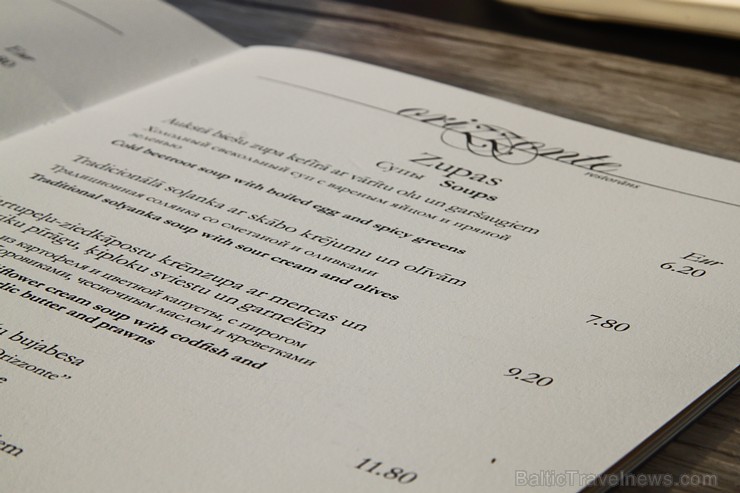 Eur
orizzonte
restorāns
Zupas
Супы Soups
Eur
Aukstā biešu zupa kefīrā ar vārītu olu un garšaugiem 6.20
Холодный свекольный суп с вареным яйцом и пряной
зеленью
Cold beetroot soup with boiled egg and spicy greens
Tradicionālā soļanka ar skābo krējumu un olīvām 7.80
Традиционная солянка со сметаной и оливками
Traditional solyanka soup with sour cream and olives
ziedkāpostu krēmzupa ar mencas un 9.20
pīrāgu, ķiploku sviestu un garnelēm
из картофеля и цветной капусты, с пирогом
чесночным маслом и креветками
cream soup with codfish and
butter and prawns
bujabesa 11.80
Orizzonte”
BalticTravelnews.com